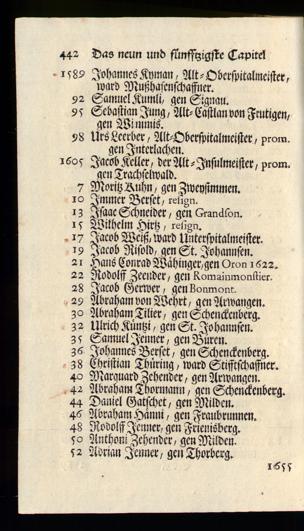 442 Das neun und fünffzigste Capitel
1589 Johannes Kyman, Alt-Oberspitalmeister,
ward Mußhafenschaffner.
92 Samuel Kumli, gen Signau.
95 Sebastian Jung, Alt-Castlan von Frutigen,
gen Wimmis.
98 Urs Leerber, Alt-Oberspitalmeister, prom.
gen Interlachen.
1605 Jacob Keller, der Alt-Insulmeister, prom.
gen Trachselwald.
7 Moritz Kuhn, gen Zweysimmen.
10 Immer Berset, resign.
13 Isaac Schneider, gen Grandson.
15 Wilhelm Hirtz, resign.
17 Jacob Weiß, ward Unterspitalmeister.
19 Jacob Risold, gen St. Johannsen.
21 Hans Conrad Wähinger, gen Oron 1622.
22 Rodolff Zeender, gen Romainmonstier.
28 Jacob Gerwer, gen Bonmont.
29 Abraham von Wehrt, gen Arwangen.
30 Abraham Tilier, gen Schenckenberg.
32 Ulrich Küntzi, gen St. Johannsen.
35 Samuel Jenner, gen Büren.
36 Johannes Berset, gen Schenckenberg.
38 Christian Thüring, ward Stifftschaffner.
40 Marquard Zehender, gen Arwangen.
42 Abraham Thormann, gen Schenckenberg.
44 Daniel Gatschet, gen Milden.
46 Abraham Hänni, gen Fraubrunnen.
48 Rodolff Jenner, gen Frienisberg.
50 Anthoni Zehender, gen Milden.
52 Adrian Jenner, gen Thorberg.
1655